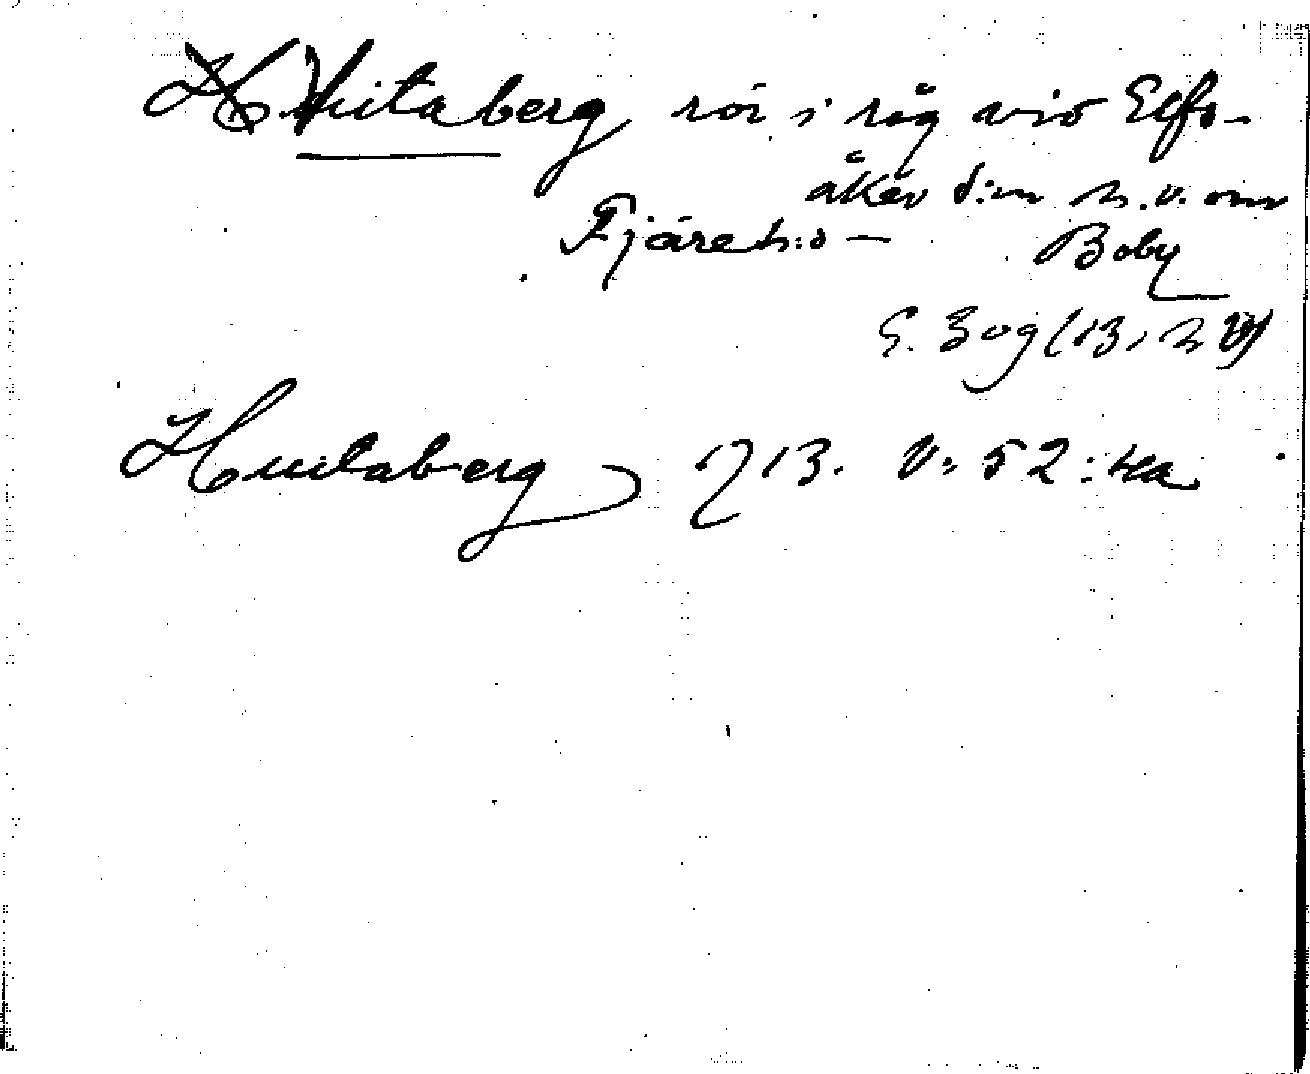 Hvitaberg rör i råg vid Elfs-
åker s:n n.v. om
Fjäre h:d — Boby
Hvitaberg 1713. V: 52: Ha